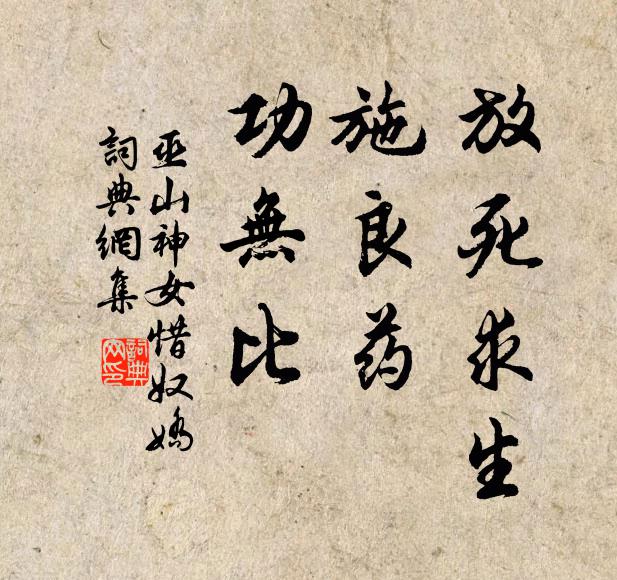 放死求生
施良药
功無比
巫山神女惜奴嬌
詞典網集
詞典
网印